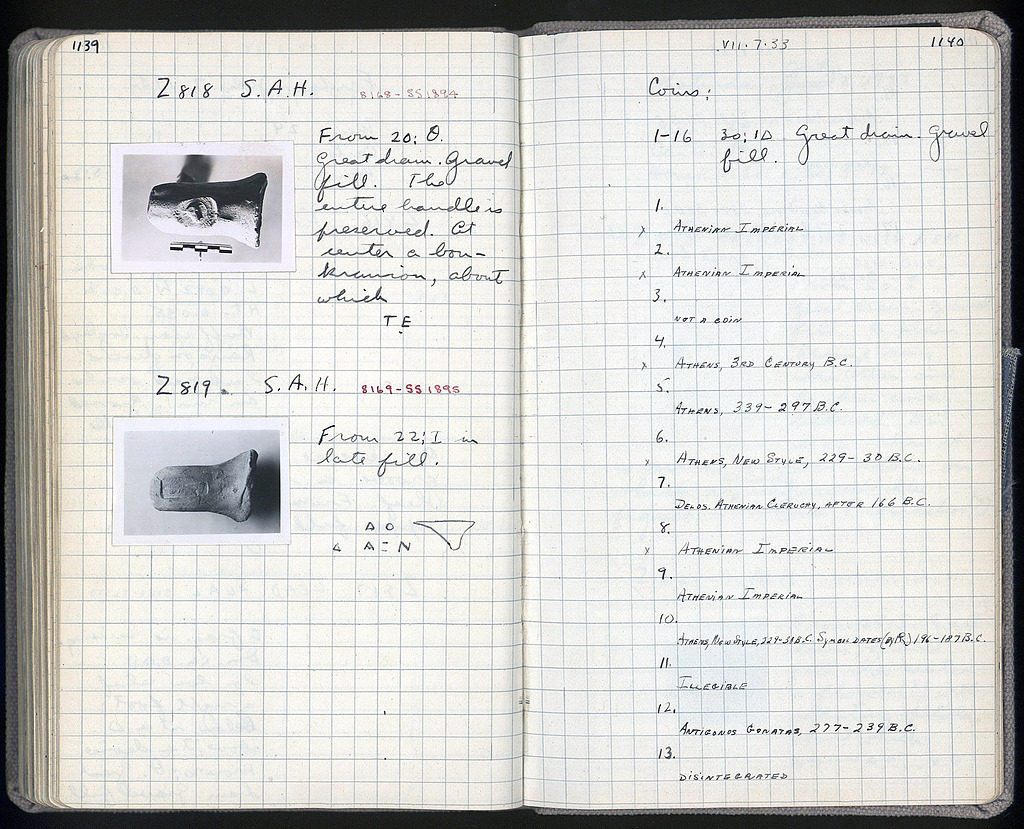 1139
Z 818 S.A.H. 8168-SS 1894
From 20; Θ.
Great drain. Gravel
fill. The
entire handle is
preserved. At
center a bou-
kranion, about
which
T E
Z 819. S.A.H. 8169-SS 1895
From 22; I in
late fill.
Δ Ο
Δ Α Ξ Ν
VII.7.33 1140
Coins:
1-16 30; ID Great drain. gravel
fill.
1.
x Athenian Imperial
2.
x Athenian Imperial
3.
not a coin
4.
x Athens, 3rd Century B.C.
5.
Athens, 339-297 B.C.
6.
x Athens, New Style, 229-30 B.C.
7.
Delos. Athenian Cleruchy, after 166 B.C.
8.
x Athenian Imperial
9.
Athenian Imperial
10.
Athens, New Style, 229-30 B.C. Symbol dates 196-187 B.C.
11.
Illegible
12.
Antigonos Gonatas, 277-239 B.C.
13.
Disintegrated